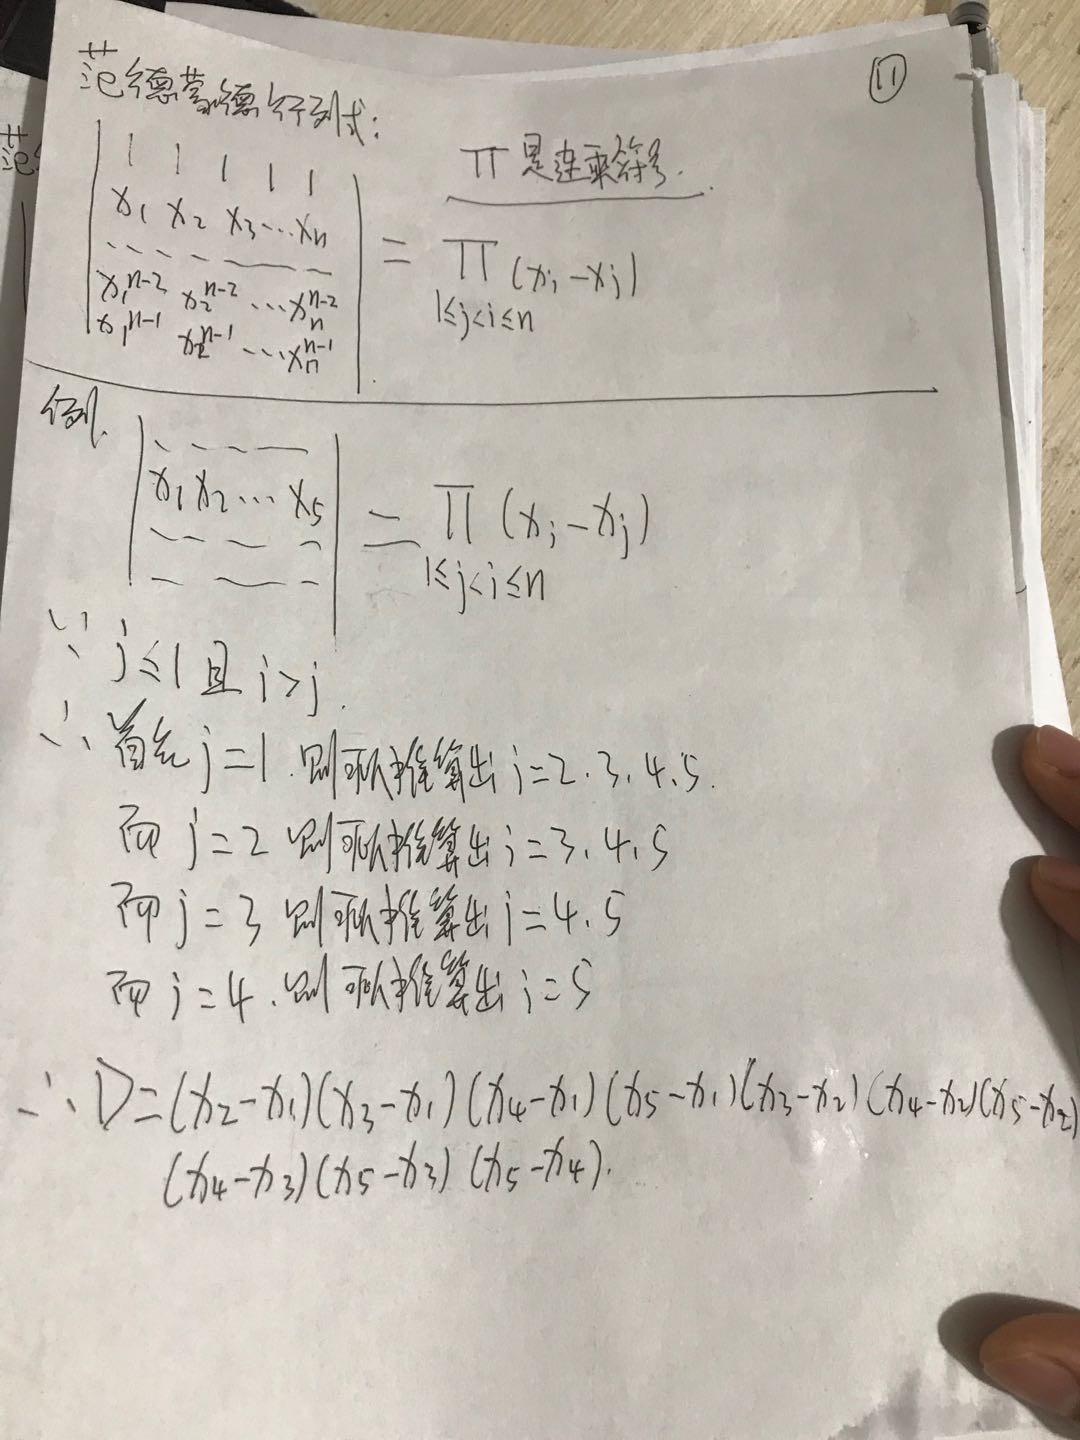 ⑪
范德蒙德行列式:
∏是连乘符号.
| 1 1 1 1 1 |
| x₁ x₂ x₃ ⋯ xₙ |
| - - - - - - - |
| x₁ⁿ⁻² x₂ⁿ⁻² ⋯ xₙⁿ⁻² |
| x₁ⁿ⁻¹ x₂ⁿ⁻¹ ⋯ xₙⁿ⁻¹ |
= ∏ (xᵢ-xⱼ)
1≤j<i≤n
例.
| - - - - |
| x₁ x₂ ⋯ x₅ |
| - - - - |
| - - - - |
= ∏ (xᵢ-xⱼ)
1≤j<i≤n
∵ j≤1 且 i>j.
∴ 首先 j=1. 则可以推算出 i=2.3.4.5.
而 j=2 则可以推算出 i=3.4.5
而 j=3 则可以推算出 i=4.5
而 j=4. 则可以推算出 i=5
∴ D=(x₂-x₁)(x₃-x₁)(x₄-x₁)(x₅-x₁)(x₃-x₂)(x₄-x₂)(x₅-x₂)
(x₄-x₃)(x₅-x₃)(x₅-x₄).